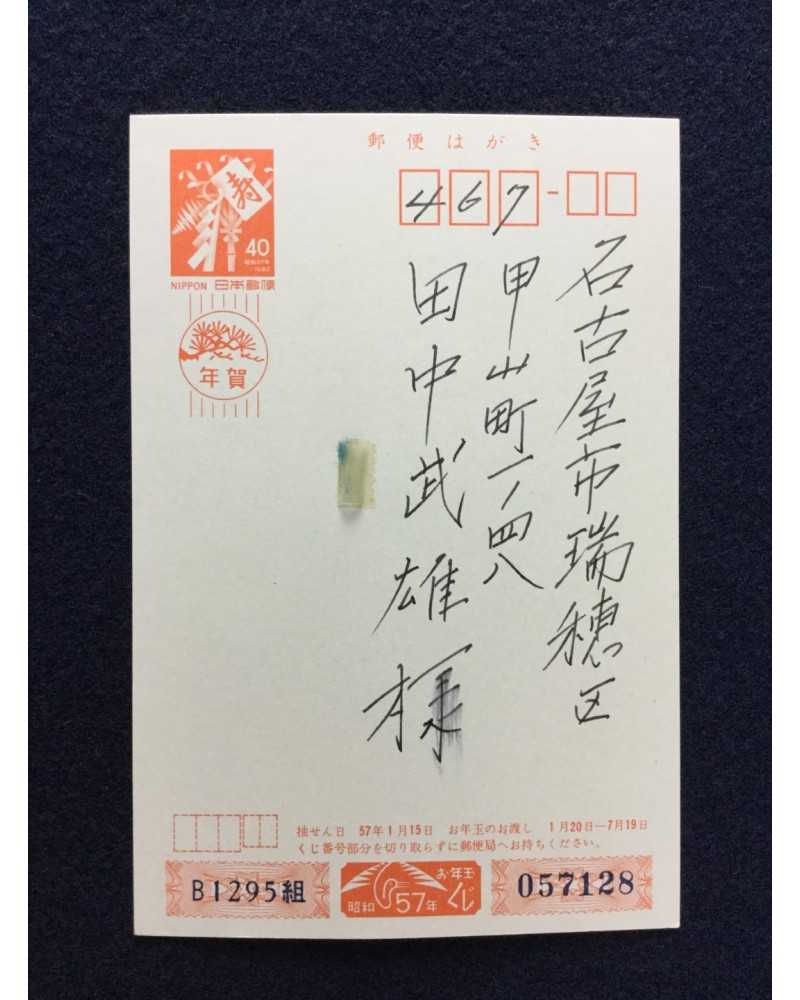 郵便はがき
寿
40
昭和57年
1982
NIPPON 日本郵便
年賀
467
名古屋市瑞穂区
甲山町一ノ四八
田中武雄様
抽せん日 57年1月15日 お年玉のお渡し 1月20日―7月19日
くじ番号部分を切り取らずに郵便局へお持ちください。
B1295組
昭和57年
お年玉くじ
057128